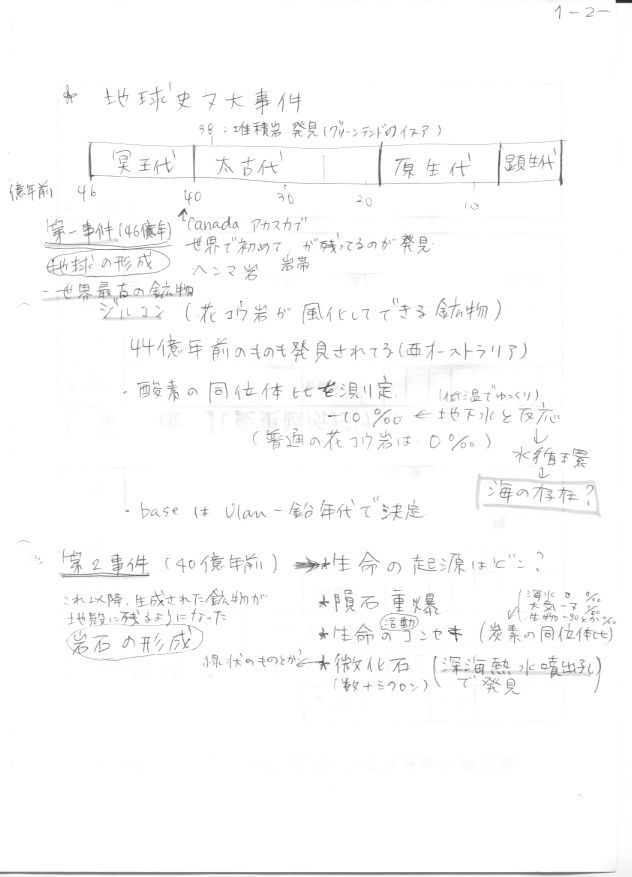 1-2-
* 地球史7大事件
38:堆積岩発見(グリーンランドのイスア)
冥王代 太古代 原生代 顕生代
億年前 46 40 30 20 10
第一事件(46億年)
地球の形成
Canada アカスカで
世界で初めて が残ってるのが発見.
岩帯
・世界最古の鉱物
ジルコン (花コウ岩が風化してできる鉱物)
44億年前のものも発見されてる(西オーストラリア)
・酸素の同位体比を測定.
(低温でゆっくり)
‰ ← 地下水と反応
(普通の花コウ岩は 0‰)
↓
水循環
↓
海の存在?
・baseは Ulan-鉛年代で決定.
第2事件 (40億年前)
→*生命の起源はどこ?
これ以降、生成された鉱物が
地殻に残るようになった
岩石の形成
★隕石重爆
活動
★生命のコンセキ (炭素の同位体比)
海水 0 ‰
大気 -7 ‰
生物
線状のものとか← ★微化石 (深海熱水噴出孔)
で発見
(数十ミクロン)